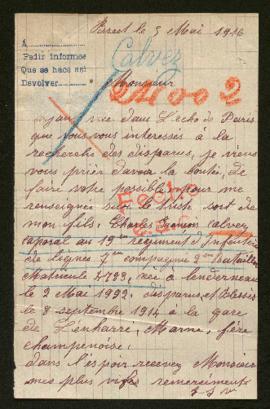 Brest le 5 Mai 1916
A
Pedir informes
Que se hace así
Devolver
Calvez
Monsieur
24002
ayant vue dans L'echo de Paris
que vous vous interessés à la
recherche des disparus, je viens
vous prier d'avoir la bonté, de
faire votre possible pour me
renseigner sur le triste sort de
mon fils, Charles calvez
caporal au 19me regiment d'Infanterie
de lignes 7me compagnie 2me bataillon
Matricule 4793, née a Landerneau
le 2 Mai 1892, disparus et Blesser
le 8 septembre 1914 à la gare
de Lenharre, Marne, fère
champenoise,
dans l'espoir recevez Monsieur
mes plus vifs remerciements